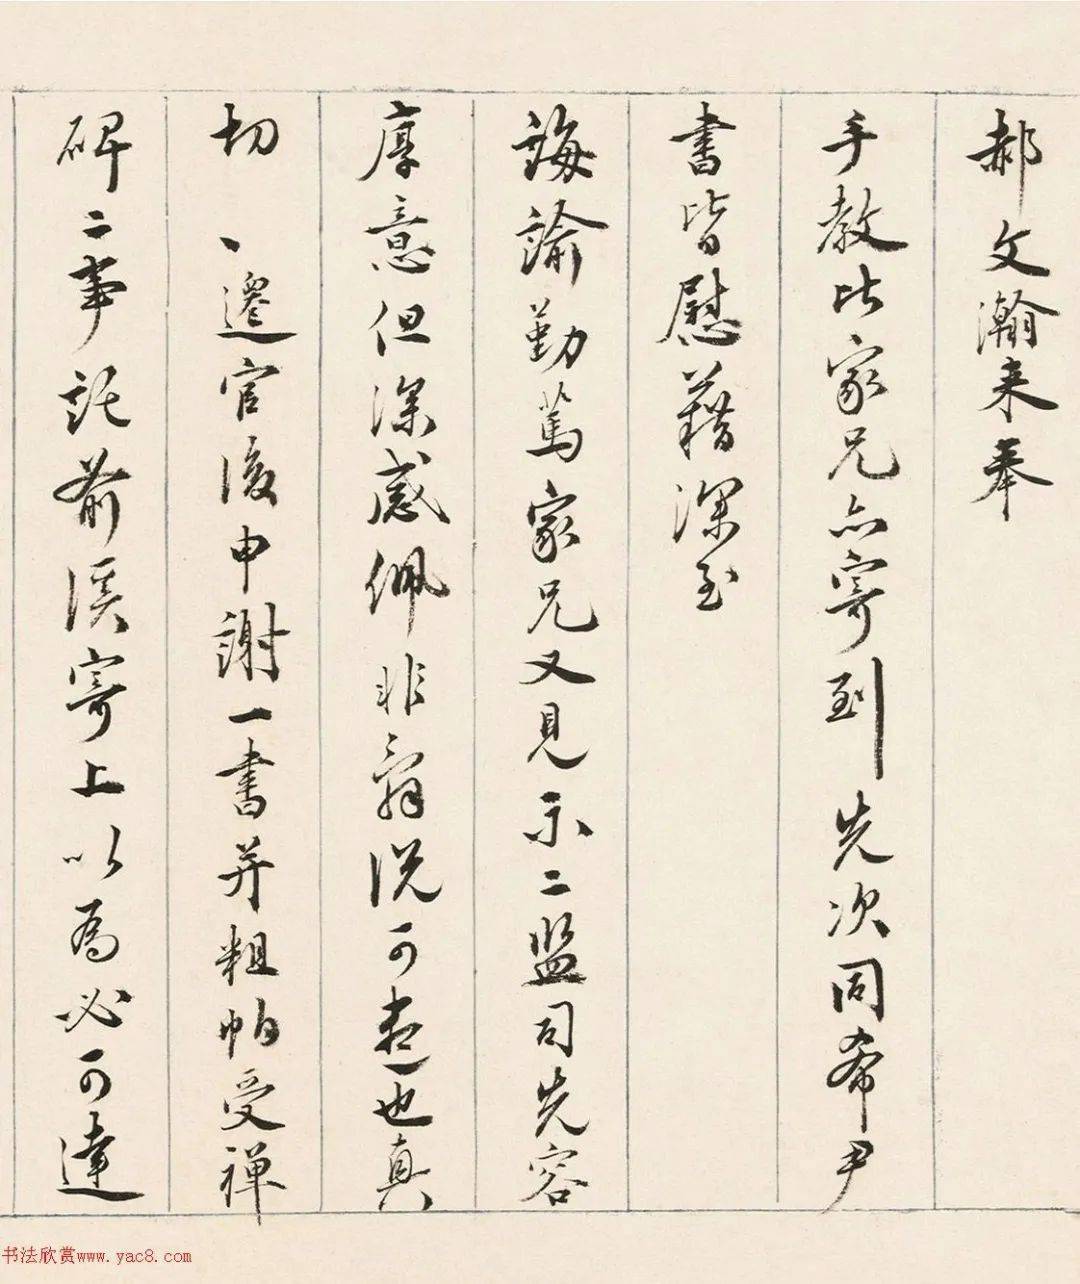 郝文瀚来奉
手教比家兄亦寄到先次同希尹
書皆慰藉深至
誨諭勤篤家兄又見示二监司先容
厚意但深感佩非辭説可盡也真
切 丶遷官後申謝一書并粗帕受禅
碑二事託俞溪寄上以為必可達
书法欣赏www.yac8.com